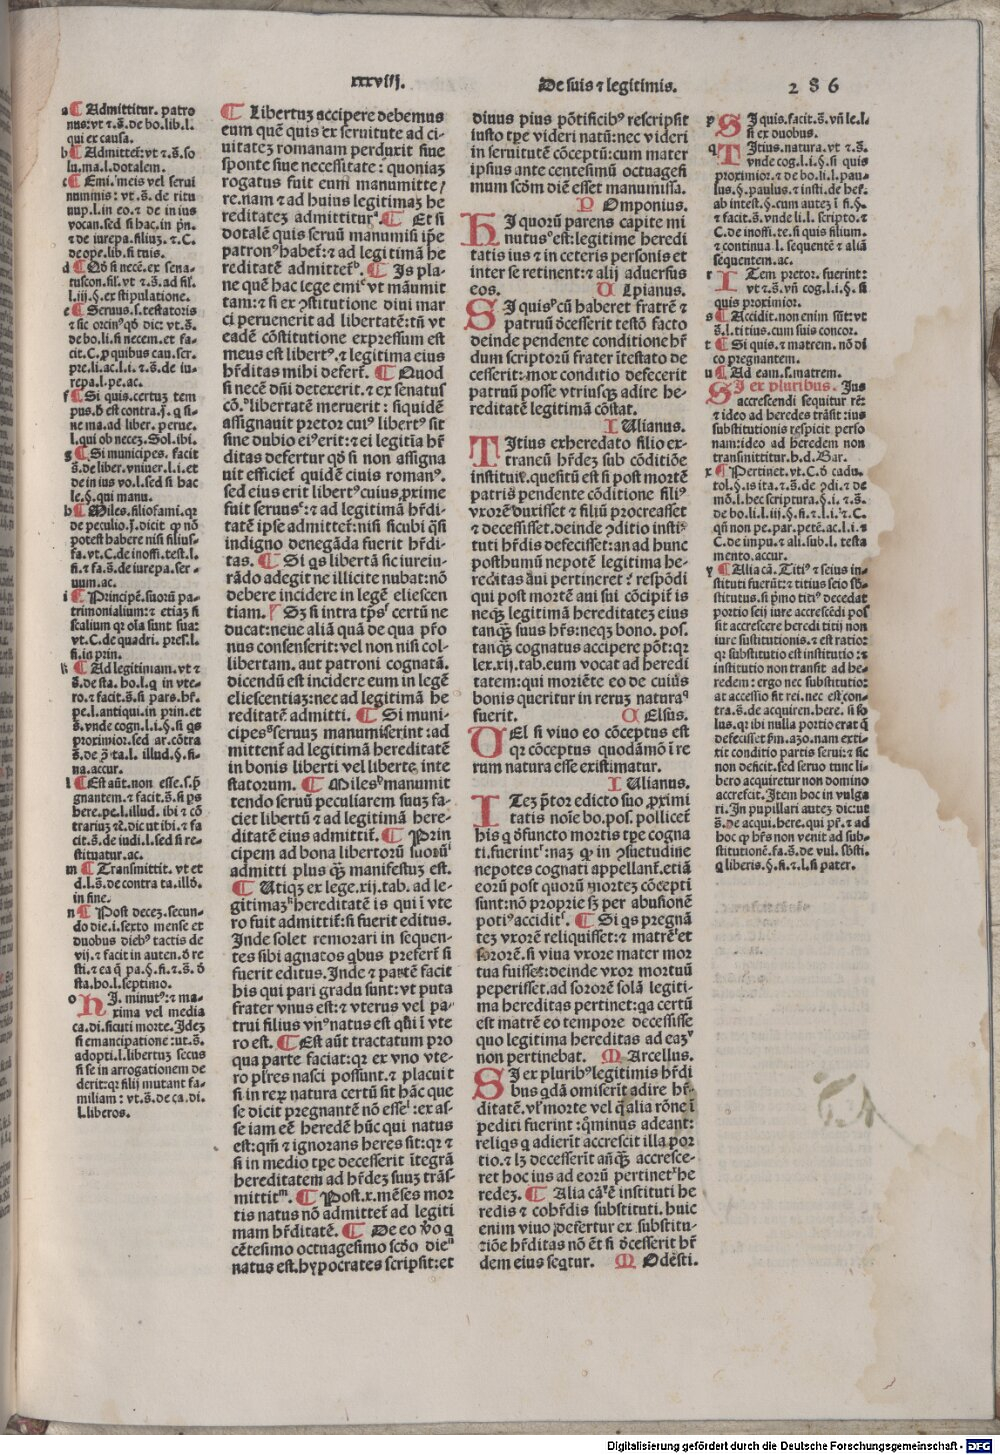 xxxviij.
De suis ⁊ legitimis.
286
a ¶ Admittitur. patro
nus: vt ⁊.s̄. de bo. lib. l.
qui ex causa.
b ¶ Admittet̄: vt ⁊.s̄. so
lu. ma. l. dotalem.
c ¶ Emi. meis vel serui
nummis: vt.s̄. de ritu
nup. l. in eo. ⁊ de in ius
vocan. sed si hac. in pn̄.
⁊ de iurepa. filius. ⁊.C.
de ope. lib. si tuis.
d ¶ Qd̄ si necē. ex sena-
tuscon. sil. vt ⁊.s̄. ad sil.
l. iij. §. ex stipulatione.
e ¶ Seruus. s. testatoris
pus. d̄ est contra. j. q si-
ne ma. ad liber. perue.
l. qui ob necez. Sol. ibi.
g ¶ Si municipes. facit
s̄. de liber. vniuer. l. i. et
de in ius vo. l. sed si hac
le. §. qui manu.
h ¶ Miles. filiofami. qr
de peculio. j. dicit ꝙ nō
potest habere nisi filius-
fa. vt. C. de inoffi. test. l.
fi. ⁊ fa. s̄. de iurepa. ser-
uum. ac.
i ¶ Principē. suorū pa-
trimonialium: ⁊ etiaz si
fiscalium qr oīa sunt sua:
vt. C. de quadri. pres. l.
fi. in prin.
k ¶ Ad legitimam. vt ⁊
s̄. vnde cogn. l. i. §. si qs
proximior. sed ar. cōtra
na. accur.
l ¶ Est aūt. non esse. s. p̄
gnantem. ⁊ facit. s̄. si ps
here. pe. l. illud. §. ibi ⁊ cō
cit. s̄. de iudi. l. sed si re-
stituatur. ac.
m ¶ Transmittit. vt et
d. l. s̄. de contra ta. illd.
in fine.
n ¶ Post decez. secun-
do die. i. sexto mense ex
duobus dieb⁹ tactis de
vij. ⁊ facit in auten. d̄ re
sti. ⁊ ea q̄ pa. §. fi. ⁊. s̄. d̄
sta. ho. l. septimo.
o HI. minut⁹: ⁊ ma-
xima vel media
ca. di. sicuti morte. Idez
si emancipatione: ut. s̄.
adopti. l. libertuz secus
si se in arrogationem de
derit: qr filij mutant fa-
miliam: vt. s̄. de ca. di.
l. liberos.
¶ Libertuz accipere debemus
eum quē quis ex seruitute ad ci-
uitatez romanam perduxit siue
sponte siue necessitate: quoniaz
rogatus fuit eum manumitte/
re. nam ⁊ ad huius legitimaz he
reditatez admittitur. ¶ Et si
dotalē quis seruū manumisit ip̄e
patron⁹ habet̄: ⁊ ad legitimā he
reditatē admittet̄. ¶ Is pla-
ne quē hac lege emi vt māumit
tam: ⁊ si ex ꝯstitutione diui mar
ci peruenerit ad libertatē: tn̄ vt
eadē cōstitutione expressum est
meus est libert⁹. ⁊ legitima eius
hr̄ditas mihi defert̄. ¶ Quod
si necē dn̄i detexerit. ⁊ ex senatus
cō. libertatē meruerit: siquidē
assignauit pretor cui⁹ libert⁹ sit
sine dubio ei⁹ erit: ⁊ ei legitīa hr̄
ditas defertur qd̄ si non assigna
uit efficiet̄ quidē ciuis roman⁹.
sed eius erit libert⁹ cuius proxime
fuit seruus: ⁊ ad legitimā hr̄di-
tatē ipse admittet̄: nisi sicubi q̄si
indigno denegāda fuerit hr̄di-
tas. ¶ Si qs libertā sic iureiu-
rādo adegit ne illicite nubat: nō
debere incidere in legē eliescen
tiam. Sz si intra tp̄s certū ne
ducat: neue aliā quā de qua pr̄o
nus consenserit: vel non nisi col-
libertam. aut patroni cognatā.
dicendū est incidere eum in legē
eliescentiaz: nec ad legitimā he
reditatē admitti. ¶ Si muni-
cipes seruuz manumiserint: ad
mittent̄ ad legitimā hereditatē
in bonis liberti vel liberte inte
statorum. ¶ Miles manumit
tendo seruū peculiarem suuz fa-
ciet libertū ⁊ ad legitimā here-
ditatē eius admittit̄. ¶ Prin
cipem ad bona libertorū suorū
admitti plus q̄ʒ manifestuz est.
¶ Utiqz ex lege. xij. tab. ad le-
gitimaz hereditatē is qui ī vte
ro fuit admittit̄: si fuerit editus.
Inde solet remorari in sequen-
tes sibi agnatos qbus prefert̄ si
fuerit editus. Inde ⁊ partē facit
his qui pari gradu sunt: vt puta
frater vnus est: ⁊ vterus vel pa-
trui filius vn⁹ natus est qui ī vte
ro est. ¶ Est aūt tractatum pro
qua parte faciat: qr ex vno vte-
ro plr̄es nasci possunt. ⁊ placuit
si in rerz natura certū sit hāc que
se dicit pregnantē nō esse: ex as-
se iam eē heredē hūc qui natus
est: qm̄ ⁊ ignorans heres sit: qr ⁊
si in medio tp̄e decesserit ītegrā
hereditatem ad hr̄dez suuz trās-
mittit. ¶ Post. x. mēses mor
tis natus nō admittet̄ ad legiti
mam hr̄ditatē. ¶ De eo vo q
cētesimo octuagesimo scdo die
natus est. hypocrates scripsit: et
diuus pius pōtificib⁹ rescripsit
iusto tp̄e videri natū: nec videri
in seruitutē cōceptū: cum mater
ipsius ante centesimū octuagesi
mum scdm diē esset manumissa.
Pomponius.
HI quorū parens capite mi
nutus est: legitime heredi
tatis ius ⁊ in ceteris personis et
inter se retinent: ⁊ alij aduersus
eos. Ulpianus.
SI quis cū haberet fratrē ⁊
patruū decesserit testō facto
deinde pendente conditione hr̄
dum scriptorū frater ītestato de
cesserit: mox conditio defecerit
patruū posse vtriusqz adire he-
reditatē legitimā cōstat.
Iulianus.
TItius exheredato filio ex-
traneū hr̄dez sub cōditiōe
instituit. quesitū est si post mortē
patris pendente cōditione fili⁹
vxorē duxisset ⁊ filiū procreasset
⁊ decessisset. deinde ꝯditio insti-
tuti hr̄dis defecisset: an ad hunc
posthumū nepotē legitima he-
reditas aui pertineret: respōdi
qui post mortē aui sui cōcipit̄ is
neqz legitimā hereditatez eius
tanq̄ʒ suus hr̄s: neqz bono. pos.
tanq̄ʒ cognatus accipere pōt: qr
lex. xij. tab. eum vocat ad heredi
tatem: qui moriēte eo de cuius
bonis queritur in reruz natura
fuerit. Celsus.
VEl si viuo eo cōceptus est
qr cōceptus quodāmō ī re
rum natura esse existimatur.
Iulianus.
ITez pr̄tor edicto suo proximi
tatis noīe bo. pos. pollicet̄
his q defuncto mortis tp̄e cogna
ti. fuerint: naz ꝙ in ꝯsuetudine
nepotes cognati appellant̄. etiā
eorū post quorū mortez cōcepti
sunt: nō proprie sz per abusionē
poti⁹ accidit. ¶ Si qs pregnā
tez vxorē reliquisset: ⁊ matrē et
sororē. si viua vxore mater mor
tua fuisset: deinde vxor mortuū
peperisset. ad sororē solā legiti-
ma hereditas pertinet: qa certū
est matrē eo tempore decessisse
quo legitima hereditas ad eaz
non pertinebat. Marcellus.
SI ex plurib⁹ legitimis hr̄di
bus qdā omiserīt adire hr̄-
ditatē. vl̓ morte vel q̄ alia rōne ī
pediti fuerint: qminus adeant:
reliqs q adierīt accrescit illa por
tio. ⁊ lz decesserīt anq̄ʒ accresce-
ret hoc ius ad eorū pertinet he
redez. ¶ Alia cā ē instituti he
redis ⁊ cohr̄dis substituti. huic
enim viuo defertur ex substitu-
tiōe hr̄ditas nō et̄ si decesserit hr̄
dem eius seqtur. Modesti.
p SI quis. facit. s̄. vn̄ le. l.
si ex duobus.
q TItius. natura. vt ⁊. s̄.
vnde cog. l. i. §. si quis
proximior. ⁊ de bo. li. l. pau-
lus. §. paulus. ⁊ insti. de her.
ab intest. §. cum autez ī fi. §.
⁊ facit. s̄. vnde li. l. scripto. ⁊
C. de inoffi. te. si quis filium.
⁊ continua l. sequentē ⁊ aliā
sequentem. ac.
r ITem pretor. fuerint:
vt ⁊. s̄. vn̄ cog. l. i. §. si
quis proximior.
s ¶ Accidit. non enim sūt: vt
s̄. l. titius. cum suis concor.
t ¶ Si quis. ⁊ matrem. nō di
co pregnantem.
u ¶ Ad eam. s. matrem.
SI ex pluribus. Jus
accrescendi sequitur rē:
⁊ ideo ad heredes trāsit: ius
substitutionis respicit perso
nam: ideo ad heredem non
transmittitur. h. d. Bar.
x ¶ Pertinet. vt. C. d̄ cadu.
tol. §. is ita. ⁊. s̄. de ꝯdi. ⁊ de
mō. l. hec scriptura. §. i. ⁊. s̄.
de bo. li. l. iij. §. fi. ⁊. l. i. ⁊. C.
qn̄ non pe. par. petē. ac. l. i. ⁊
C. de impu. ⁊ ali. sub. l. testa
mento. accur.
y ¶ Alia cā. Titi⁹ ⁊ seius in-
stituti fuerūt: ⁊ titius seio sb-
stitutus. si pīmo titi⁹ decedat
portio seij iure accrescēdi pos
sit accrescere heredi titij non
iure sustitutionis. ⁊ est ratio:
qr substitutio est institutio: ⁊
institutio non transit ad he-
redem: ergo nec substitutio:
at accessio fit rei. nec est con-
tra. s̄. de acquiren. here. si so
lus. qr ibi nulla portio erat q̄
defecisset p̄m. azo. nam exti-
xit conditio partis serui: ⁊ sic
non deficit. sed seruo tunc li-
bero acquiretur non domino
accrescit. Item hoc in vulga
ri. In pupillari autez dic ut
s̄. de acqui. here. qui pr̄. ⁊ ad
hoc ꝙ hr̄s non venit ad sub-
stitutionē. fa. s̄. de vul. sbsti.
q liberis. §. fi. ⁊. l. si pater.
Digitalisierung gefördert durch die Deutsche Forschungsgemeinschaft - DFG